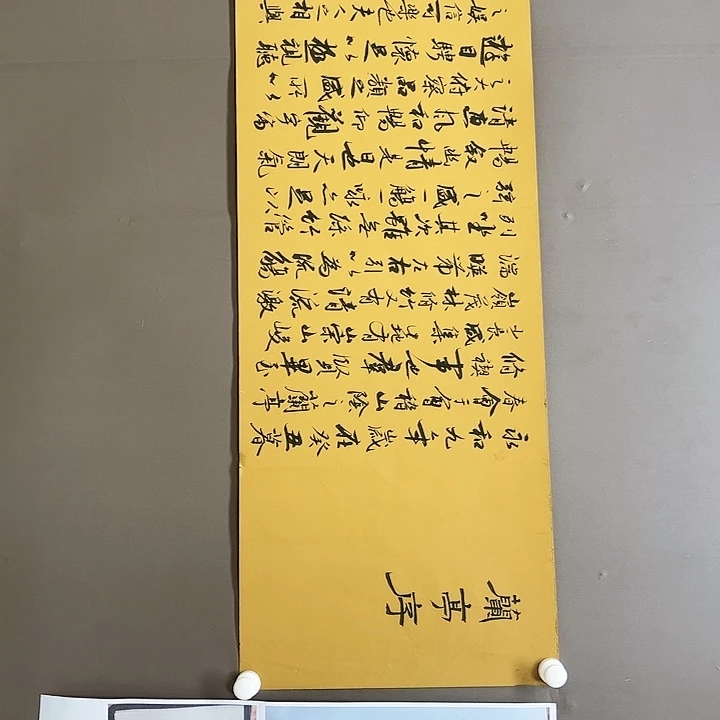 蘭亭序
永和九年歲在癸丑暮
春會于會稽山陰之蘭亭
脩禊事也群賢畢至
少長咸集此地有崇山峻
嶺茂林脩竹又有清流激
湍暎帶左右引以為流觴
列坐其次雖無絲竹管
弦之盛一觴一詠亦足以
暢敘幽情是日也天朗氣
清惠風和暢仰觀宇宙
之大俯察品類之盛所以
遊目騁懷足以極視聽
之娛信可樂也夫人之相與